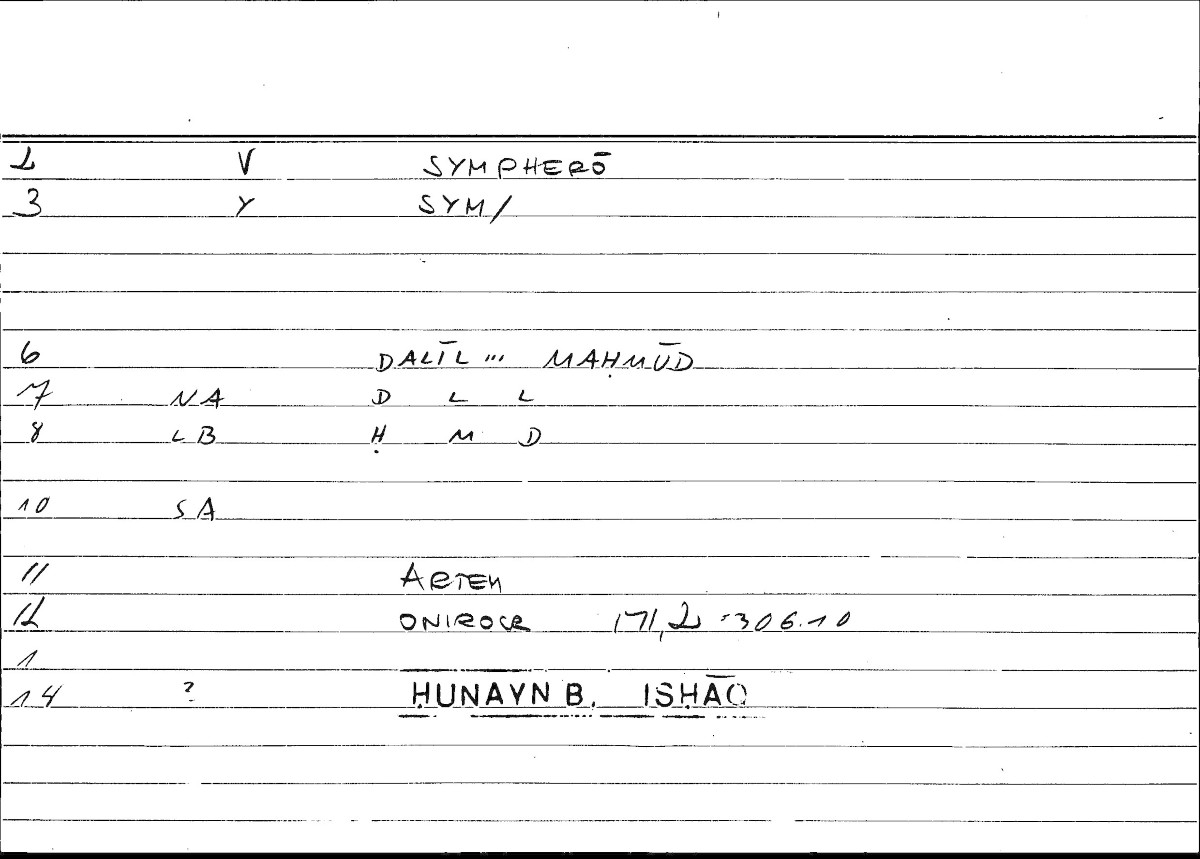 2 V SYMPHERŌ
3 Y SYM/
6 DALĪL ''' MAḤMŪD
7 NA D L L
8 LB Ḥ M D
10 SA
11 ARTEM
12 ONIROCR 171,2 = 306.10
1
14 ? ḤUNAYN B. ISḤĀQ